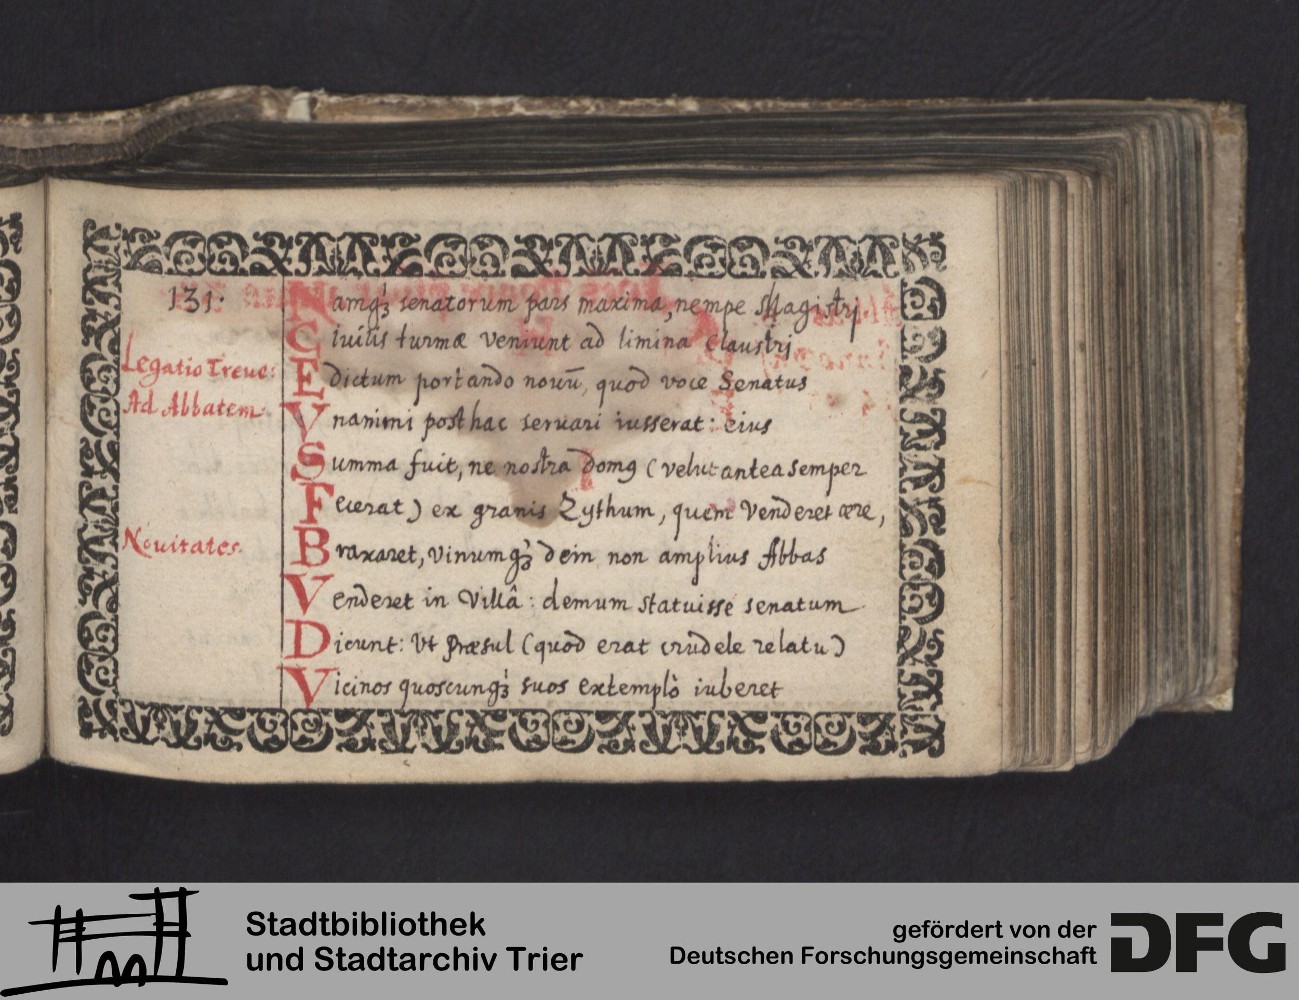 131.
Legatio Treue:
Ad Abbatem.
Nouitates.
Namq3 senatorum pars maxima, nempe Magistrj
Ciuilis turmæ veniunt ad limina Claustrj
Edictum portando nouū, quod voce Senatus
Vnanimi posthac seruari iusserat: eius
Summa fuit, ne nostra domꝰ (velut antea semper
Fecerat) ex granis Zythum, quem Venderet ære,
Braxaret, vinumq3 dein non amplius Abbas
Venderet in Villâ: demum statuisse senatum
Dicunt: Vt Præsul (quod erat crudele relatu)
Vicinos quoscunq3 suos extemplò iuberet
Stadtbibliothek
und Stadtarchiv Trier
gefördert von der
Deutschen Forschungsgemeinschaft
DFG